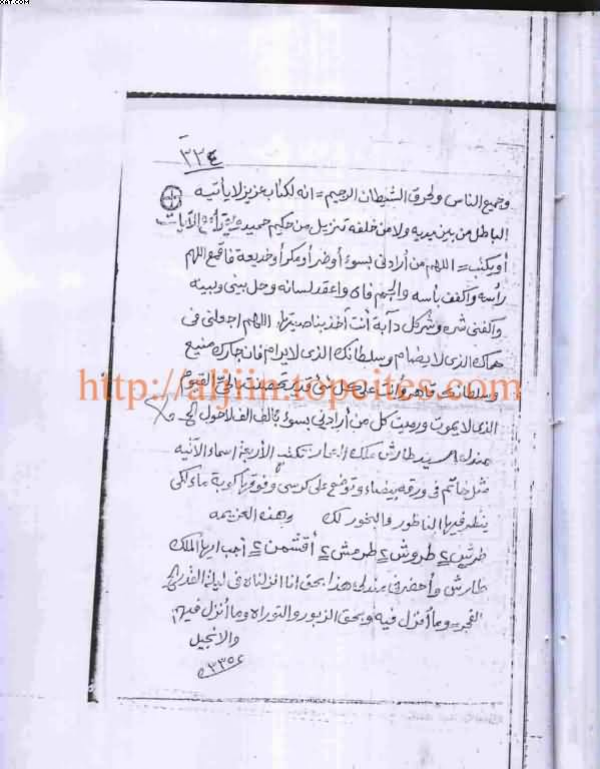 XAT.COM
٣٣٤
وجميع الناس وطرق الشيطان الرجيم = انه لكتاب عزيز لا يأتيه
الباطل من بين يديه ولا من خلفه تنزيل من حكيم حميد الآيات
أو يكتب = اللهم من أرادني بسوء أو ضر أو مكر أو خديعة فاقمع اللهم
رأسه واكفف بأسه والجم فاه واعقد لسانه وحل بيني وبينه
واكفني شره وشر كل دآبة أنت آخذ بناصيتها اللهم اجعلني فى
حماك الذى لا يضام وسلطانك الذى لا يرام فان جارك منيع
وسلطانك قاهر وانت على كل شئ قدير تحصنت بالحي القيوم
http://aljiin.topcites.com
الذى لا يموت ورميت كل من أرادنى بسوء بألف ألف لاحول
مندل السيد طارش ملك تكتب الأربعة اسماء الآتيه
مثل خاتم فى ورقه بيضاء وتوضع على كرسى وفوقها كوبة ماء لكى
ينظر فيها الناظور والبخور لك وهذه العزيمه
طرش ٢ طروش ٢ طرمش ٢ أقشمن ٢ أجب ايها الملك
طارش واحضر فى مندلى هذا بحق انا انزلناه فى ليلة القدر
الفجر وما أنزل فيه وبحق الزبور والتوراه وما أنزل فيهم
والانجيل